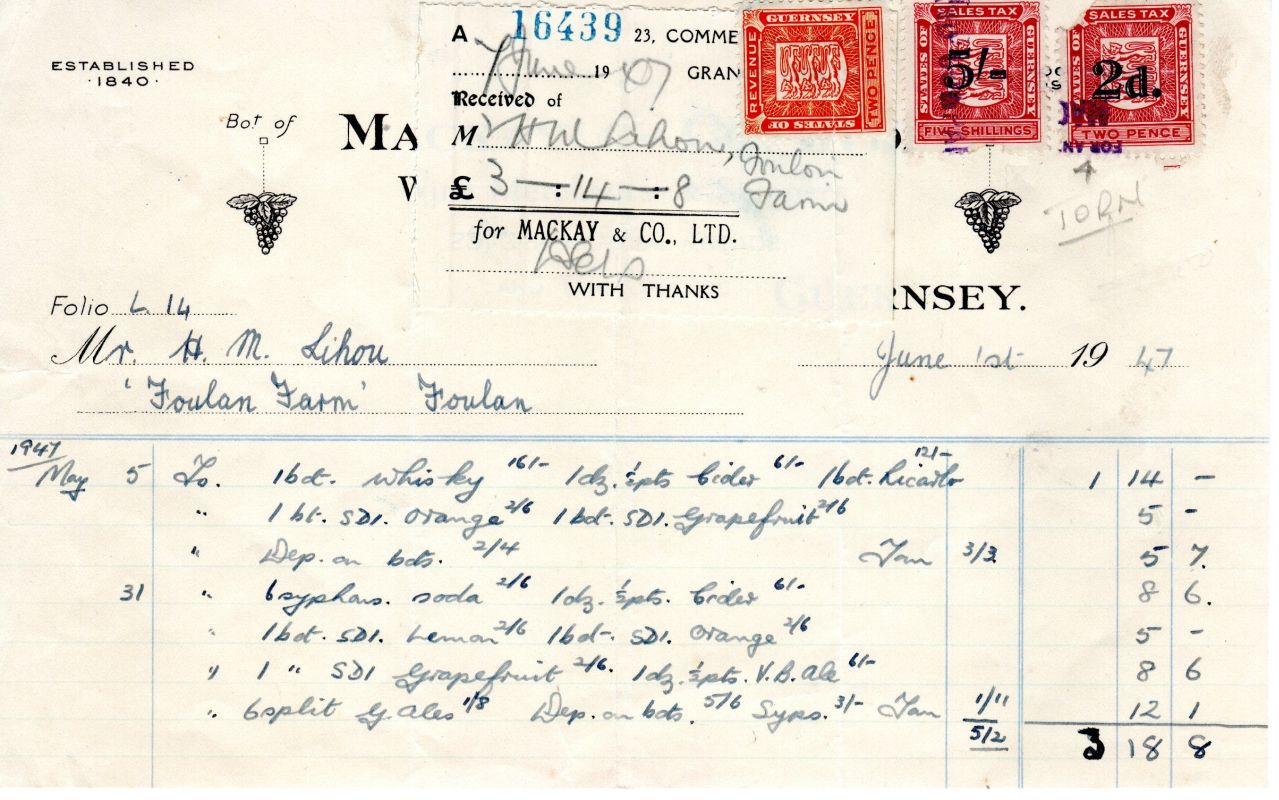 ESTABLISHED
· 1840 ·
Bot of
MA
W
GUERNSEY.
A 16439 23, COMME
June 19 47 GRAN
Received of
M H M Lihou, Foulon
Farm
£ 3 — : 14 — : 8
for MACKAY & CO., LTD.
WITH THANKS
GUERNSEY
REVENUE
TWO PENCE
STATES OF
SALES TAX
STATES OF
GUERNSEY
5/-
FIVE SHILLINGS
SALES TAX
STATES OF
GUERNSEY
2d.
TWO PENCE
FOR AN
TORN
Folio L. 14
Mr. H. M. Lihou
June 1st 19 47
'Foulan Farm' Foulan
1947
May 5 To. 1 bot. Whisky 16/- 1 dz. ½pts Cider 6/- 1 bot. Ricardo 12/- 1 14 -
" 1 bt. SD1. Orange 2/6 1 bot. SD1. Grapefruit 2/6 5 -
" Dep. on bots. 2/4 Tax 3/3 5 7.
31 " 6 syphons. soda 2/6 1 dz. ½pts. Cider 6/- 8 6.
" 1 bot. SD1. Lemon 2/6 1 bot. SD1. Orange 2/6 5 -
" 1 " SD1 Grapefruit 2/6. 1 dz. ½pts. V.B. Ale 6/- 8 6
" 6 split G. Ales 1/8 Dep. on bots. 5/6 Syps. 3/- Tax 1/11 12 1
5/2 3 18 8